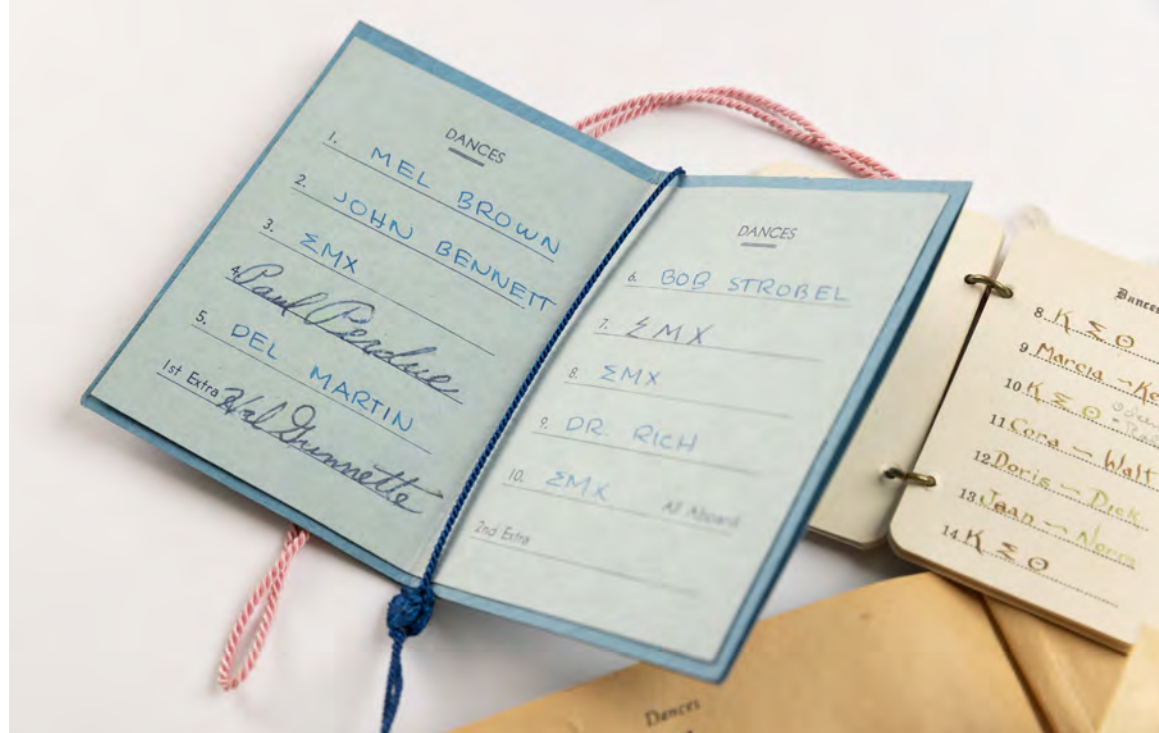 DANCES
1. MEL BROWN
2. JOHN BENNETT
3. ΣMX
4. Paul Perdue
5. DEL MARTIN
1st Extra Hal Gunnette
DANCES
6. BOB STROBEL
7. ΣMX
8. ΣMX
9. DR. RICH
10. ΣMX All Aboard
2nd Extra
Dances
8. K Σ Θ
9. Marcia – Ke
10. K Σ Θ
11. Cora – Walt
12. Doris – Dick
13. Jean – Norm
14. K Σ Θ
Dances